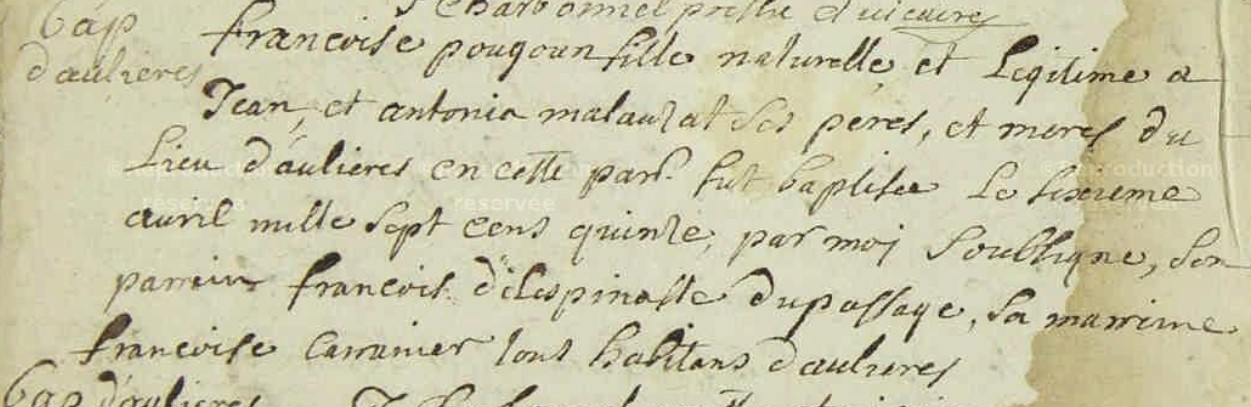 Charbonnel prestre et vicaire
Bap
d'aulieres
francoise pougoun fille naturelle et Legitime a
Jean, et antonia malauzat ses peres, et meres du
Lieu d'aulieres en cette parr. fut baptisée Le sixieme
avril mille sept cens quinze, par moi Soubsigne, son
parrein francois delespinasse du passage, sa marrine
francoise Carramier tous habitans d'aulieres
Bap d'aulieres